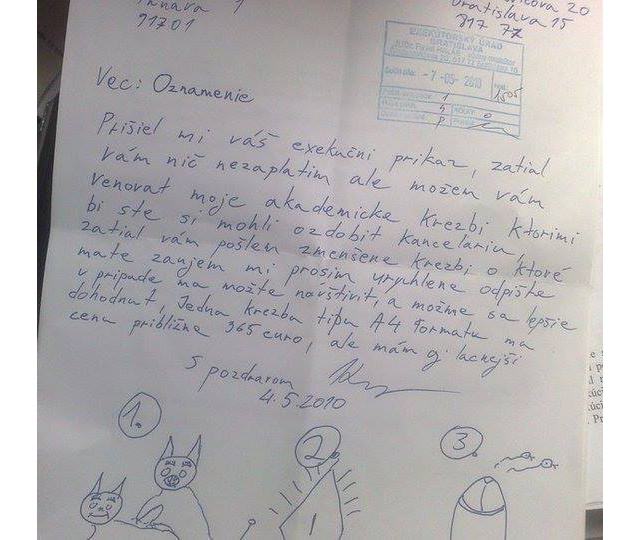 1
91701
20
Bratislava 15
817 77
EXEKÚTORSKÝ ÚRAD
BRATISLAVA
-7-05-2010
1505
Vec: Oznamenie
Prišiel mi váš exekučni prikaz, zatial
vám nič nezaplatim ale možem vám
venovat moje akademicke Krezbi ktorimi
bi ste si mohli ozdobit kancelariu,
zatial vám pošlem zmenšene krezbi o ktoré
mate zaujem mi prosim urychlene odpište
v pripade ma možte navštivit, a možme sa lepšie
dohodnut, Jedna krezba tipu A4 formatu ma
cenu približne 365 euro, ale mám aj lacnejši
S pozdravom
4.5.2010
1.
2.
3.